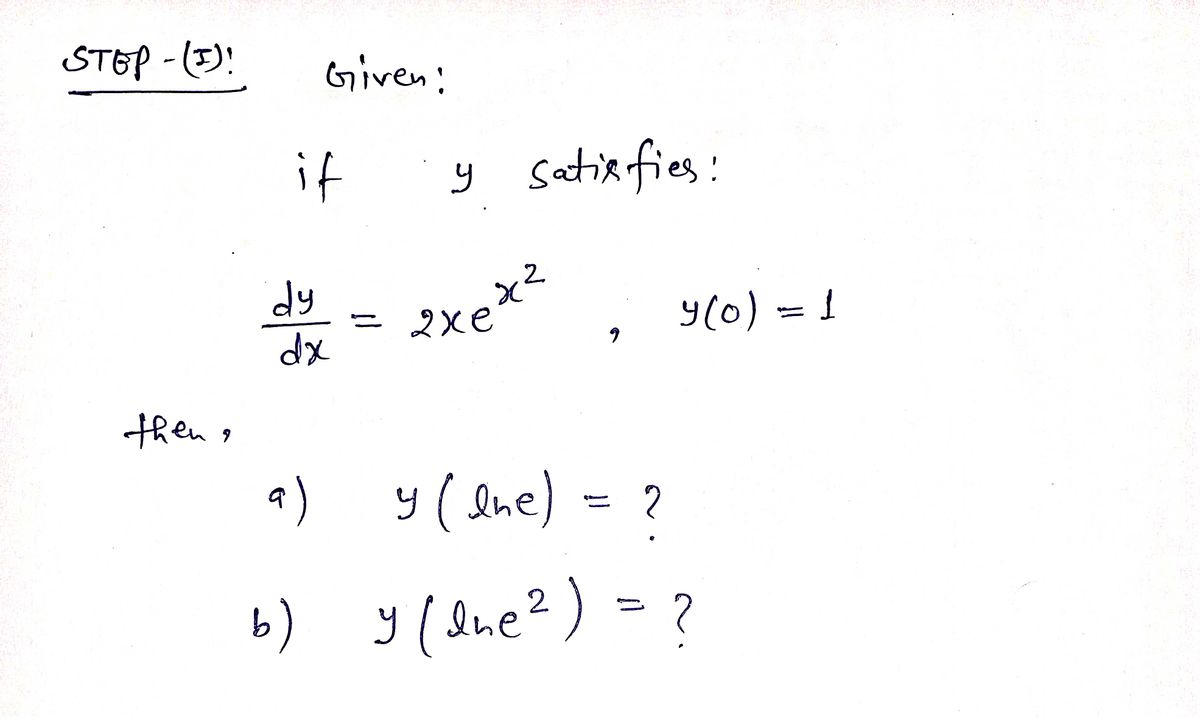 STEP-(I):
Given:
if y satisfies:
dy/dx = 2xe^x^2 , y(0) = 1
then,
a) y(lne) = ?
b) y(lne^2) = ?